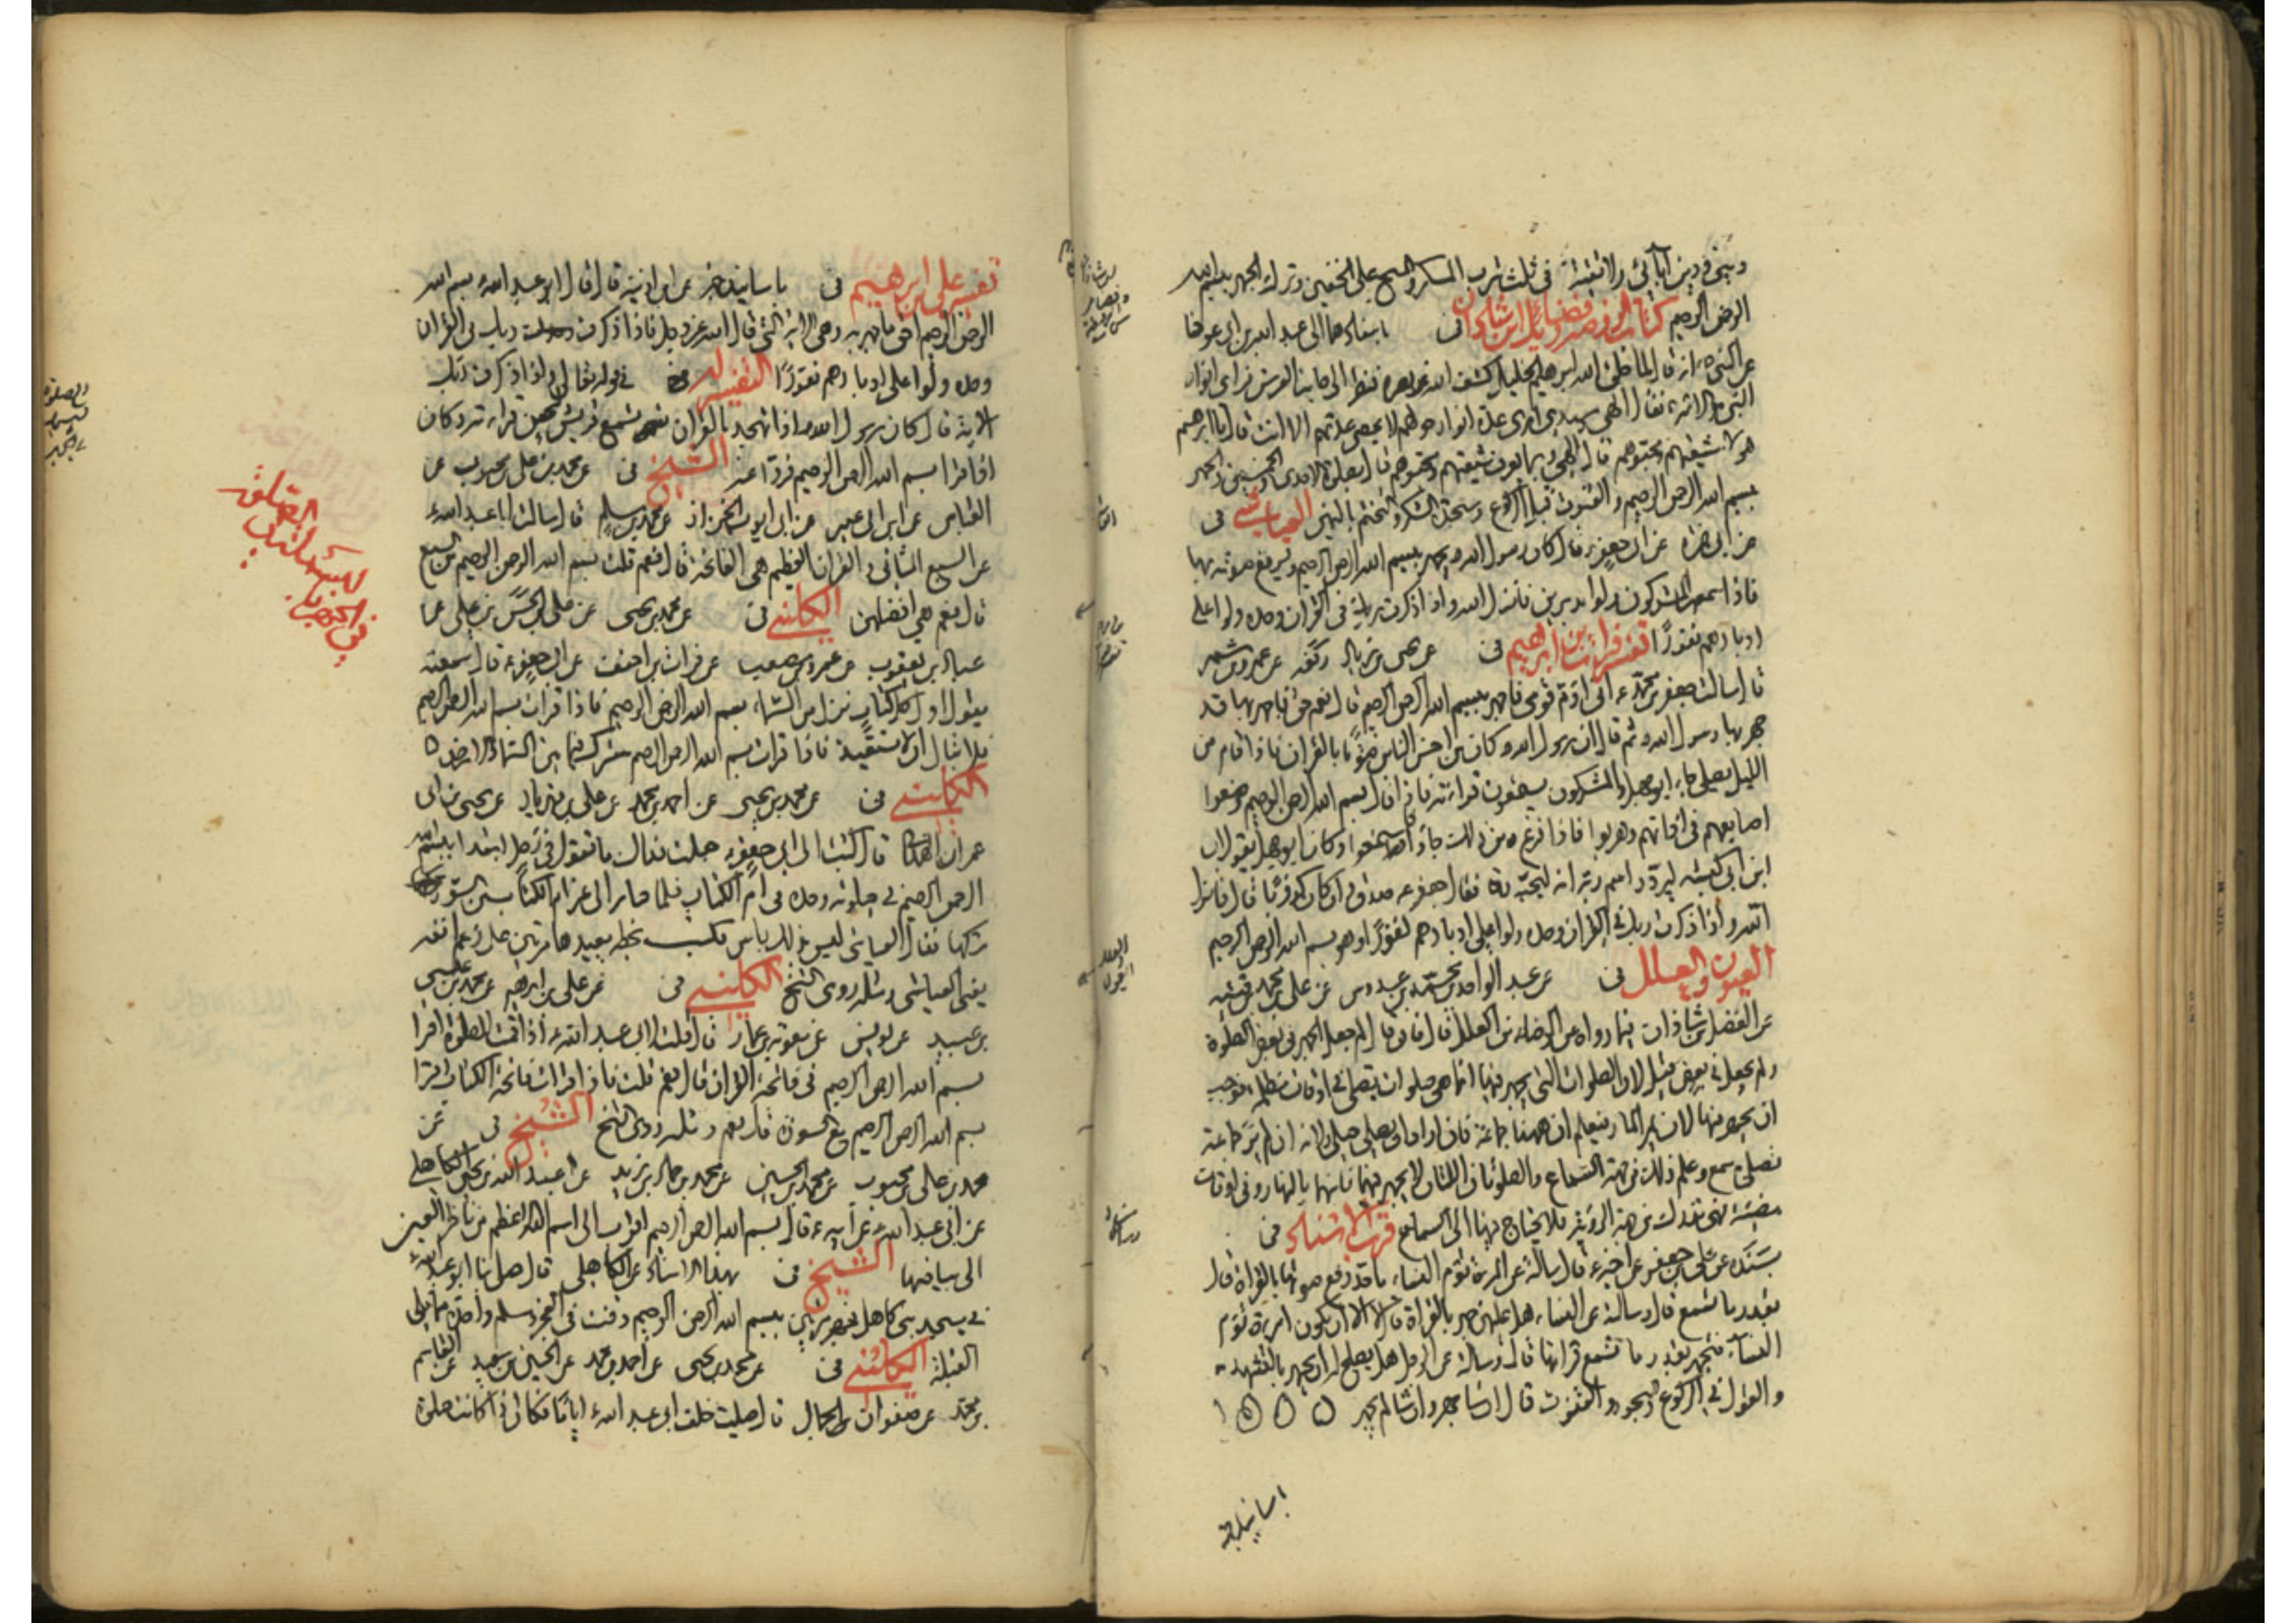 ديني ودين آبائي ولا تقية في ثلث شرب المسكر والمسح على الخفين وترك الجهر ببسم الله
الرحمن الرحيم كتاب الروضة وفضائل ابن شاذان في باسنادهما الى عبد الله بن ابي اوفى
عن النبي انه قال لما خلق الله ابراهيم الخليل كشف الله عن بصره فنظر الى جانب العرش فراى انوار
النبي والائمة فقال الهي وسيدي ارى عدة انوار حولهم لا يحصي عدتهم الا انت قال يا ابرهيم
هؤلاء شيعتهم ومحبوهم قال الهي وبما يعرف شيعتهم ومحبوهم قال بصلوة الاحدى والخمسين والجهر
ببسم الله الرحمن الرحيم والقنوت قبل الركوع وسجدة الشكر والتختم باليمين العياشي في
عن ابي حمزة عن ابي جعفر قال كان رسول الله يجهر ببسم الله الرحمن الرحيم ويرفع صوته بها
فاذا سمعها المشركون ولوا مدبرين فانزل الله واذا ذكرت ربك في القران وحده ولوا على
ادبارهم نفورا تفسير فرات بن ابراهيم في عن عمرو بن شمر
قال سالت جعفر بن محمد ع اني اؤم قومي فاجهر ببسم الله الرحمن الرحيم قال نعم حق فاجهر بها قد
جهر بها رسول الله ثم قال ان رسول الله كان من احسن الناس صوتا بالقران فاذا قام من
الليل يصلي جاء ابو جهل والمشركون يستمعون قراءته فاذا قال بسم الله الرحمن الرحيم وضعوا
اصابعهم في اذانهم وهربوا فاذا فرغ من ذلك جاؤا فاستمعوا وكان ابو جهل يقول ان
ابن ابي كبشة ليردد اسم ربه انه ليحبه فقال جعفر ع صدق وان كان كذوبا قال فانزل
الله واذا ذكرت ربك في القران وحده ولوا على ادبارهم نفورا وهو بسم الله الرحمن الرحيم
العيون والعلل في عن عبد الواحد بن محمد بن عبدوس عن علي بن محمد بن قتيبه
عن الفضل بن شاذان فيما رواه عن الرضا من العلل قال فان قال لم جعل الجهر في بعض الصلوة
ولم يجعل في بعض قيل لان الصلوات التي يجهر فيها انما هي صلوات تصلى في اوقات مظلمة فوجب
ان يجهر فيها لان يمر المار فيعلم ان ههنا جماعة فان اراد ان يصلي صلى لانه ان لم ير جماعة
تصلي سمع وعلم ذلك من جهة السماع والصلوتان اللتان لا يجهر فيهما فانهما بالنهار وفي اوقات
مضيئة فهي تدرك من جهة الرؤية فلا يحتاج فيها الى السماع قرب الاسناد في
بسنده عن علي بن جعفر عن اخيه ع قال سالته عن المرءة تؤم النساء ما قدر رفع صوتها بالقراءة قال
بقدر ما تسمع قال وسالته عن النساء هل عليهن جهر بالقراءة قال لا الا ان تكون امرءة تؤم
النساء فتجهر بقدر ما تسمع قراءتها قال وسالته عن الرجل هل يصلح له ان يجهر بالتشهد
والقول في الركوع والسجود والقنوت قال ان شاء جهر وان شاء لم يجهر
باسانيده
تفسير علي بن ابرهيم في باسانيده عن ابن اذينة قال قال ابو عبد الله بسم الله
الرحمن الرحيم احق ما جهر به وهي الاية التي قال الله عز وجل فاذا ذكرت ربك في القران
وحده ولوا على ادبارهم نفورا التفسير له في قوله تعالى واذا ذكرت ربك
الاية قال كان رسول الله اذا تهجد بالقران تسمع قريش لحسن قراءته وكان
اذا قرا بسم الله الرحمن الرحيم فروا عنه الشيخ في عن محمد بن علي بن محبوب عن
العباس عن ابن ابي عمير عن ابي ايوب الخزاز عن محمد بن مسلم قال سالت ابا عبد الله
عن السبع المثاني والقران العظيم هي الفاتحة قال نعم قلت بسم الله الرحمن الرحيم من السبع
قال نعم هي افضلهن الكليني في عن محمد بن يحيى عن علي بن الحسن بن علي عن
عباد بن يعقوب عن عمرو بن مصعب عن فرات بن احنف عن ابي جعفر ع قال سمعته
يقول اول كل كتاب نزل من السماء بسم الله الرحمن الرحيم فاذا قرات بسم الله الرحمن الرحيم
فلا تبال ان لا تستعيذ فاذا قرات بسم الله الرحمن الرحيم سترتك فيما بين السماء والارض
الكليني في عن محمد بن يحيى عن احمد بن محمد عن علي بن مهزيار عن يحيى بن ابي
عمران الهمداني قال كتبت الى ابي جعفر ع جعلت فداك ما تقول في رجل ابتدا ببسم الله
الرحمن الرحيم في صلوته وحده في ام الكتاب فلما صار الى غير ام الكتاب من السورة
تركها فقال العياشي ليس بذلك باس فكتب بخطه يعيدها مرتين على رغم انفه
يعني العياشي ومثله روى الشيخ الكليني في عن علي بن ابراهيم عن محمد بن عيسى
بن عبيد عن يونس عن معوية بن عمار قال قلت لابي عبد الله ع اذا قمت للصلوة اقرا
بسم الله الرحمن الرحيم في فاتحة القران قال نعم قلت فاذا قرات فاتحة الكتاب اقرا
بسم الله الرحمن الرحيم مع السورة قال نعم ومثله روى الشيخ الشيخ في عن
محمد بن علي بن محبوب عن محمد بن الحسين عن محمد بن حماد بن زيد عن عبد الله بن يحيى الكاهلي
عن ابي عبد الله عن ابيه ع قال بسم الله الرحمن الرحيم اقرب الى اسم الله الاعظم من ناظر العين
الى بياضها الشيخ في بهذا الاسناد عن الكاهلي قال صلى بنا ابو عبد الله
في مسجد بني كاهل فجهر مرتين ببسم الله الرحمن الرحيم وقنت في الفجر وسلم واحدة مما يلي
القبلة الكليني في عن محمد بن يحيى عن احمد بن محمد عن الحسين بن سعيد عن القاسم
بن محمد عن صفوان الجمال قال صليت خلف ابي عبد الله ع اياما فكان اذا كانت صلوة